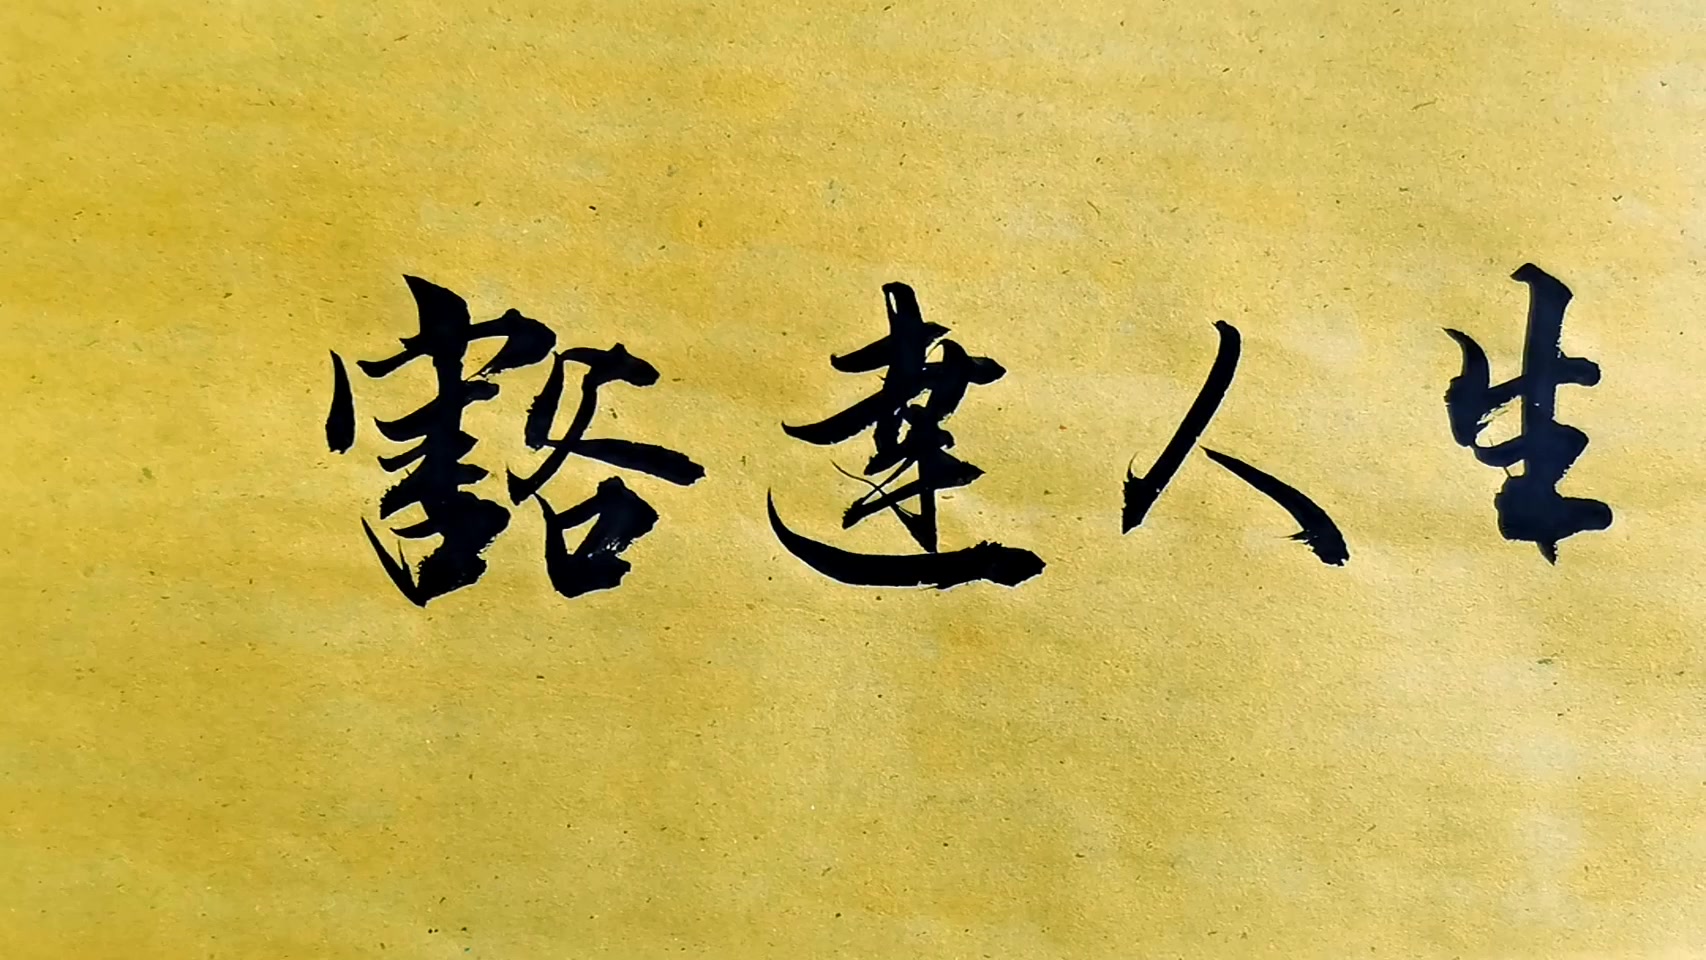 豁達人生